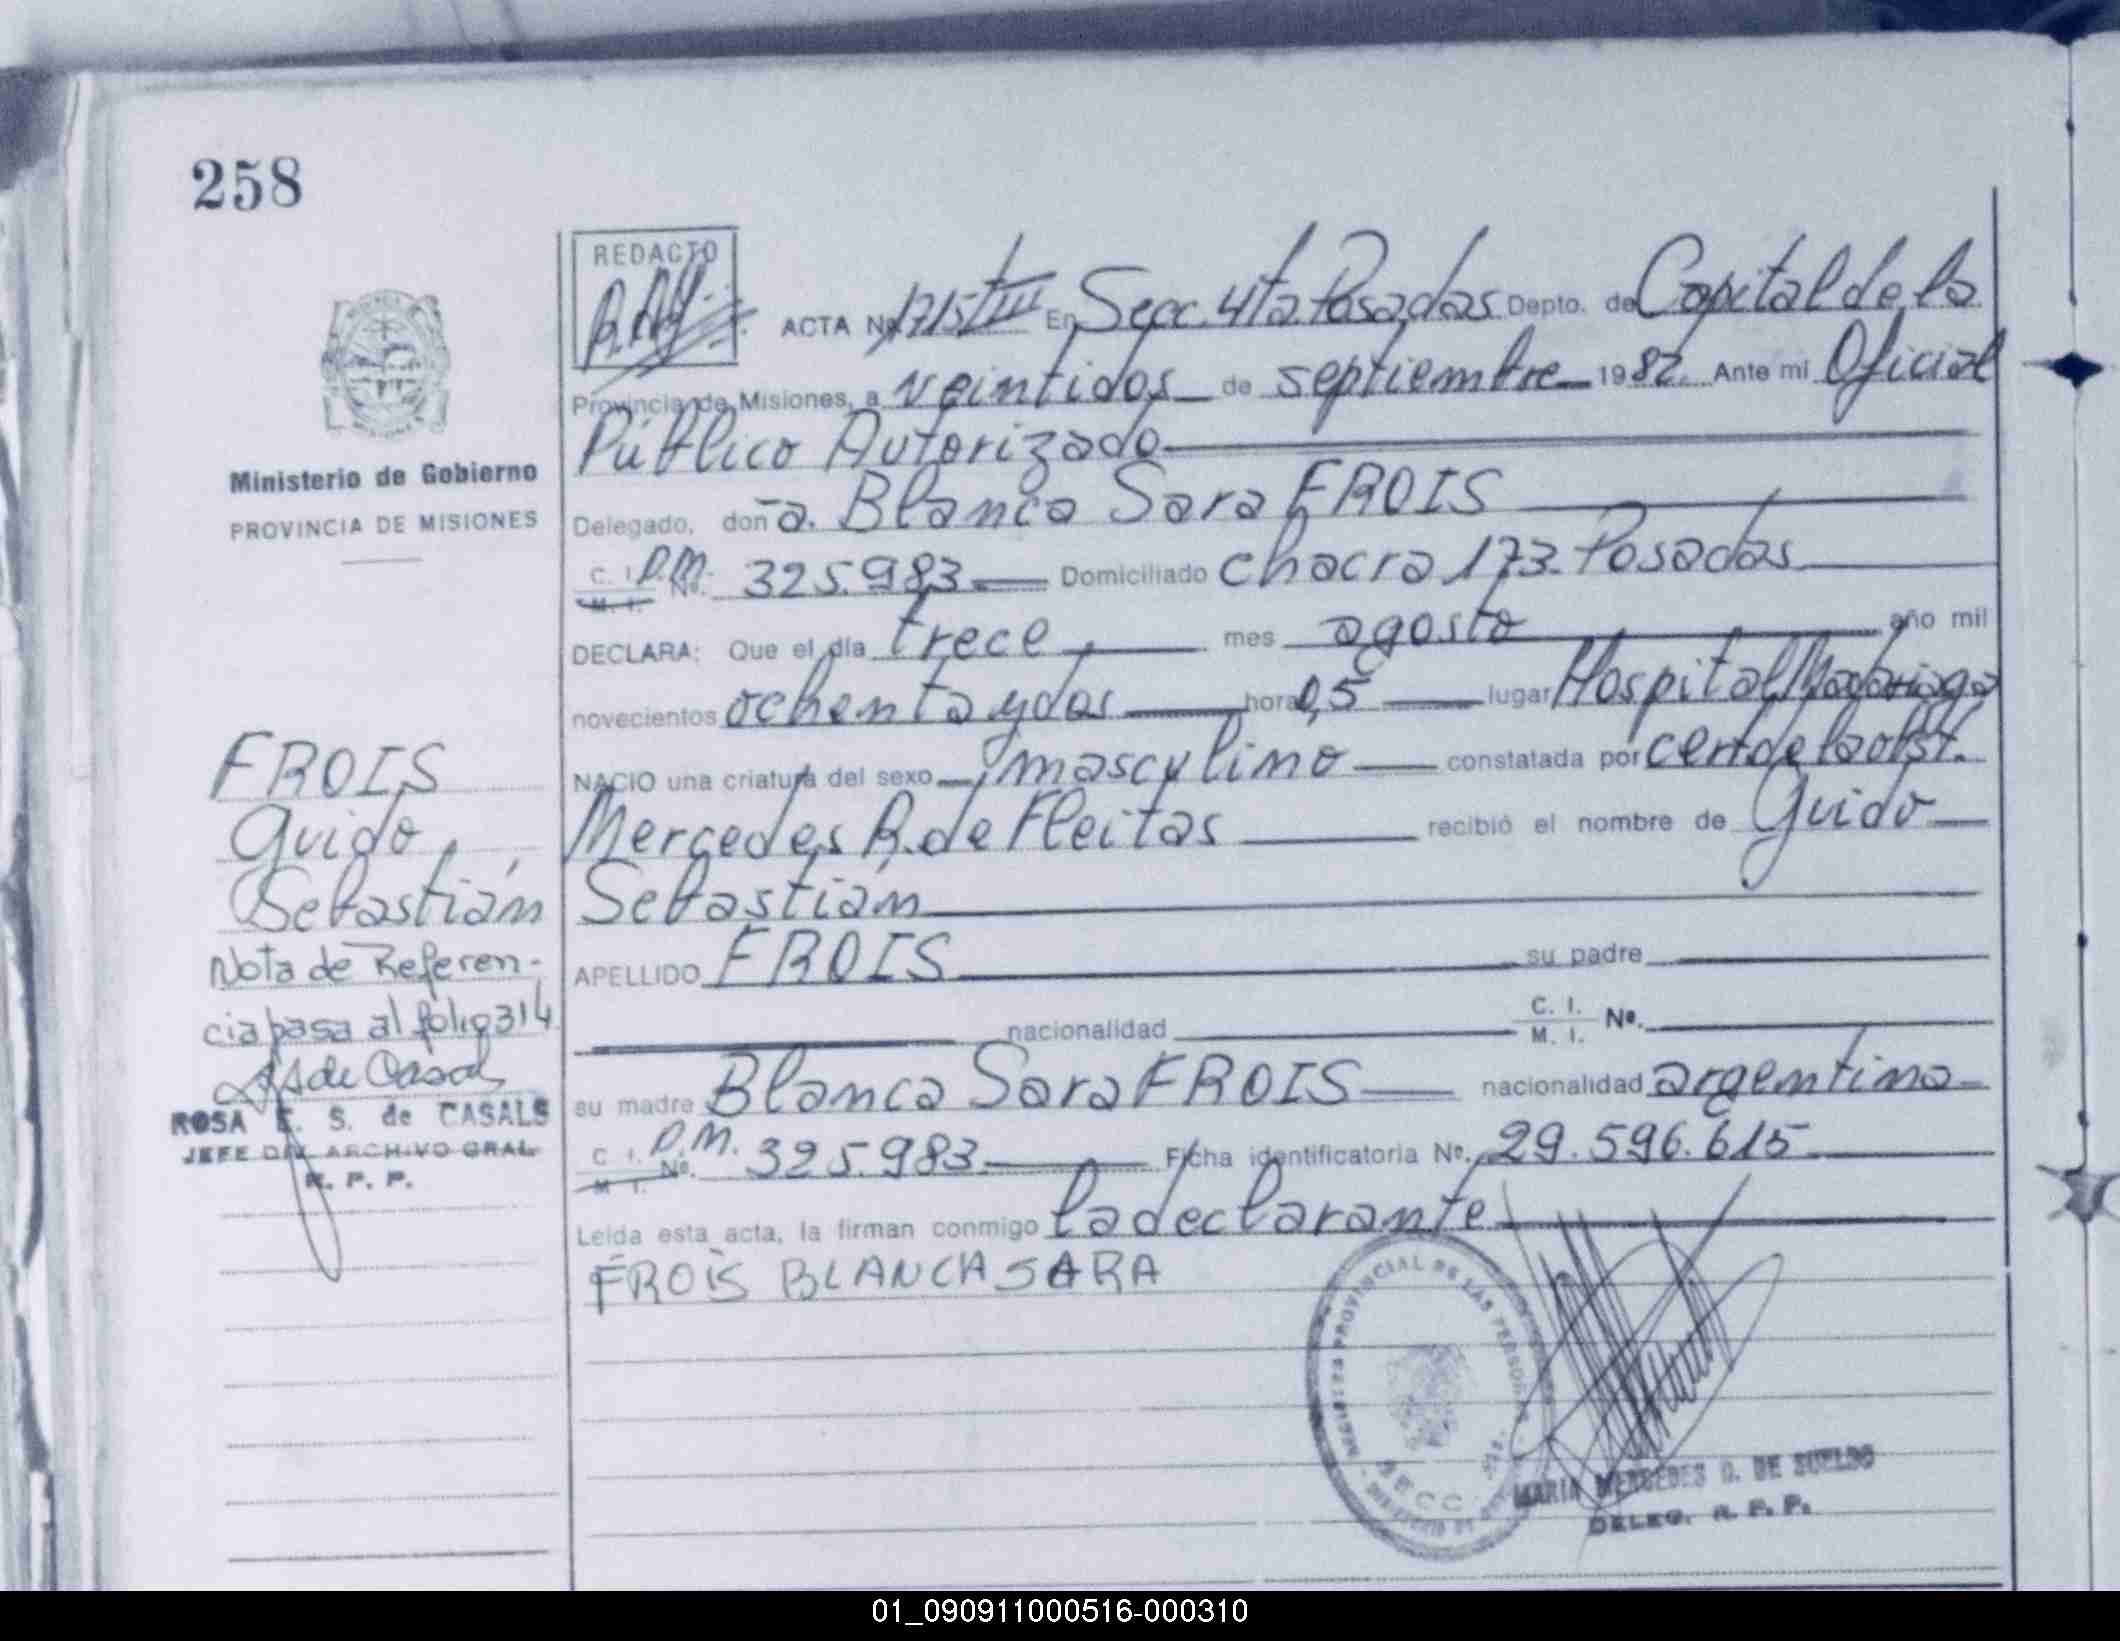 258
REDACTO
ACTA Nº 1715 T III En Secc. 4ta. Posadas Depto. de Capital de la
Provincia de Misiones, a veintidos de septiembre 1982. Ante mi Oficial
Público Autorizado
Ministerio de Gobierno
PROVINCIA DE MISIONES
Delegado, don ~a. Blanca Sara FROIS
C. I. D.M. Nº. 325.983 Domiciliado chacra 173. Posadas
M. I.
DECLARA: Que el día trece mes agosto año mil
novecientos ochenta y dos hora 0,5 lugar Hospital Madariaga
NACIO una criatura del sexo masculino constatada por cert. de la obst.
Mercedes R. de Fleitas recibió el nombre de Guido
Sebastián
FROIS
Guido
Sebastián
Nota de Referen-
cia pasa al folio 314
ROSA E. S. de CASALS
JEFE DIV. ARCHIVO GRAL.
R. P. P.
APELLIDO FROIS su padre
nacionalidad C. I. Nº.
M. I.
su madre Blanca Sara FROIS nacionalidad argentina
C. I. D.M. Nº. 325.983 Ficha identificatoria Nº. 29.596.615
M. I.
Leída esta acta, la firman conmigo la declarante
FROIS BLANCA SARA
PROVINCIAL DE LAS PERSONAS
MARIA MERCEDES D. DE SUELDO
DELEG. R. P. P.
01_090911000516-000310